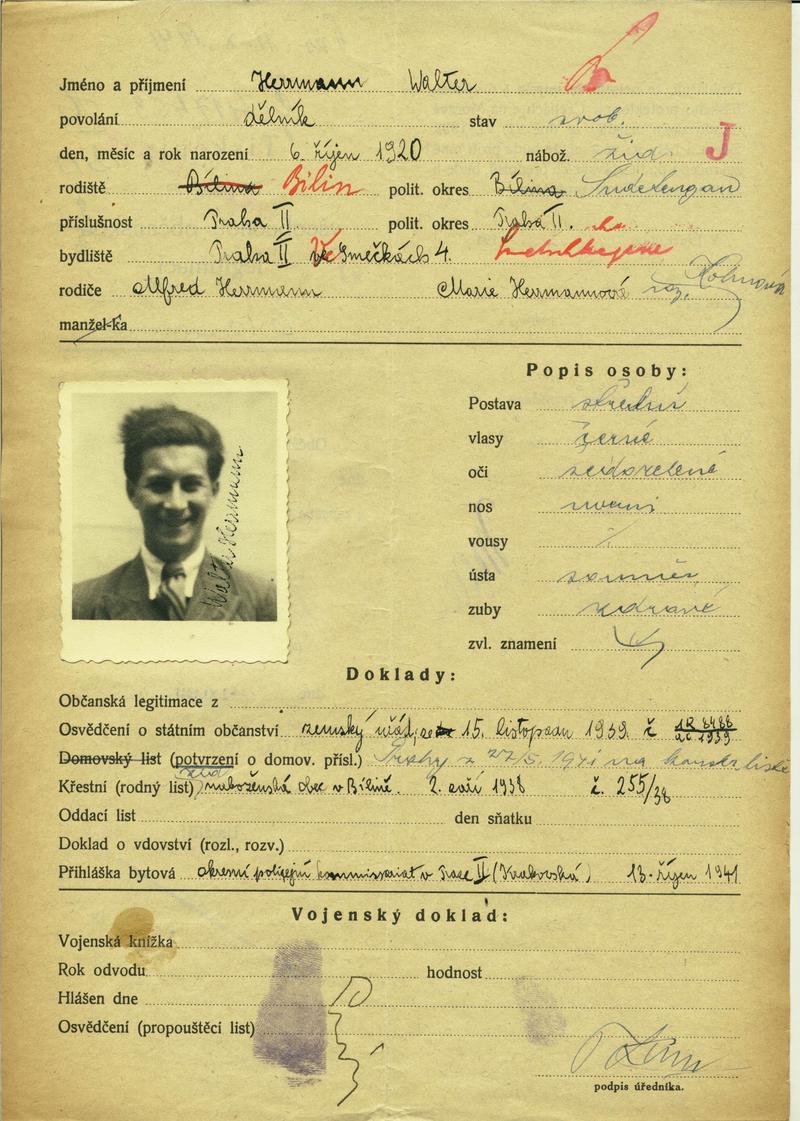 Jméno a příjmení Herrmann Walter
povolání dělník stav svob.
den, měsíc a rok narození 6. říjen 1920 nábož. žid. J
rodiště Bílina Bilin polit. okres Bílina Sudetengau
příslušnost Praha II polit. okres Praha II.
bydliště Praha II Ve Smečkách 4.
rodiče Alfred Herrmann Marie Herrmannová roz.
manžel-ka
Popis osoby:
Postava střední
vlasy černé
oči šedozelené
nos
vousy
ústa souměr
zuby zdravé
zvl. znamení
Walter Herrmann
Doklady:
Občanská legitimace z
Osvědčení o státním občanství zemský úřad, 15. listopadu 1939 č
Domovský list (potvrzení o domov. přísl.) Prahy z 27/5. 1941 na
Křestní (rodný list) žid. náboženská obec v Bílině. 2. září 1938 č. 255/38
Oddací list den sňatku
Doklad o vdovství (rozl., rozv.)
Přihláška bytová okresní policejní kommissariat v Praze II (Krakovská) 13. říjen 1941
Vojenský doklad:
Vojenská knížka
Rok odvodu hodnost
Hlášen dne
Osvědčení (propouštěcí list)
podpis úředníka.